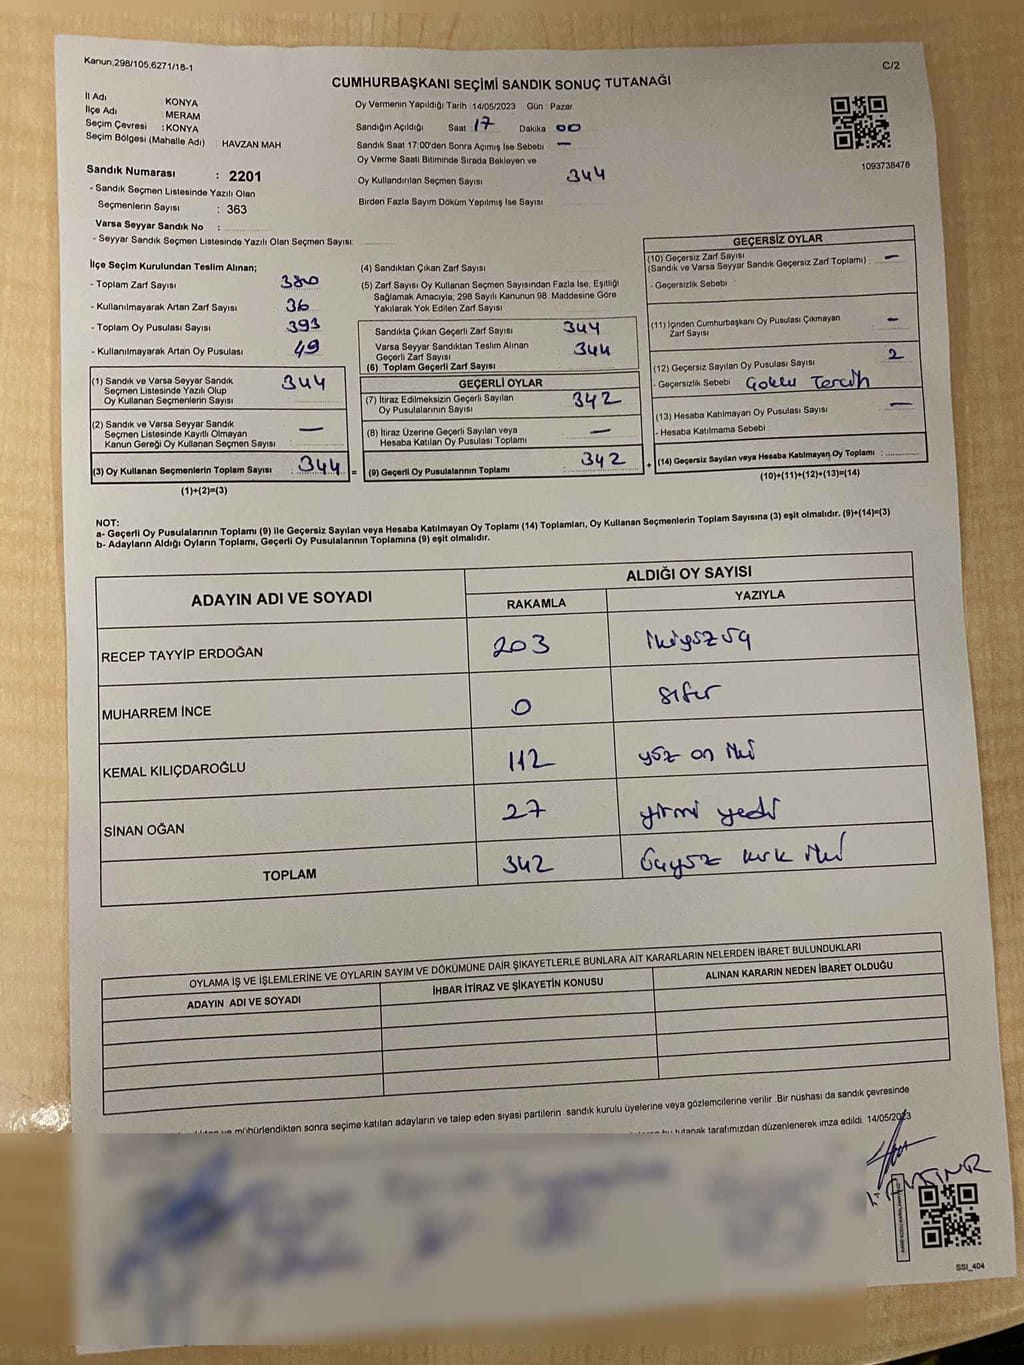 Kanun,298/105,6271/18-1
C/2
CUMHURBAŞKANI SEÇİMİ SANDIK SONUÇ TUTANAĞI
İl Adı KONYA
İlçe Adı : MERAM
Seçim Çevresi : KONYA
Seçim Bölgesi (Mahalle Adı) HAVZAN MAH
Sandık Numarası : 2201
- Sandık Seçmen Listesinde Yazılı Olan
Seçmenlerin Sayısı : 363
Varsa Seyyar Sandık No :
- Seyyar Sandık Seçmen Listesinde Yazılı Olan Seçmen Sayısı:
Oy Vermenin Yapıldığı Tarih 14/05/2023 Gün : Pazar
Sandığın Açıldığı Saat 17 Dakika 00
Sandık Saat 17:00'den Sonra Açımış İse Sebebi —
Oy Verme Saati Bitiminde Sırada Bekleyen ve
Oy Kullandırılan Seçmen Sayısı 344
Birden Fazla Sayım Döküm Yapılmış İse Sayısı
1093738478
İlçe Seçim Kurulundan Teslim Alınan;
- Toplam Zarf Sayısı 380
- Kullanılmayarak Artan Zarf Sayısı 36
- Toplam Oy Pusulası Sayısı 393
- Kullanılmayarak Artan Oy Pusulası 49
(1) Sandık ve Varsa Seyyar Sandık
Seçmen Listesinde Yazılı Olup
Oy Kullanan Seçmenlerin Sayısı 344
(2) Sandık ve Varsa Seyyar Sandık
Seçmen Listesinde Kayıtlı Olmayan
Kanun Gereği Oy Kullanan Seçmen Sayısı —
(3) Oy Kullanan Seçmenlerin Toplam Sayısı : 344 =
(1)+(2)=(3)
(4) Sandıktan Çıkan Zarf Sayısı
(5) Zarf Sayısı Oy Kullanan Seçmen Sayısından Fazla İse, Eşitliği
Sağlamak Amacıyla, 298 Sayılı Kanunun 98. Maddesine Göre
Yakılarak Yok Edilen Zarf Sayısı
Sandıkta Çıkan Geçerli Zarf Sayısı 344
Varsa Seyyar Sandıktan Teslim Alınan
Geçerli Zarf Sayısı 344
(6) Toplam Geçerli Zarf Sayısı
GEÇERLİ OYLAR
(7) İtiraz Edilmeksizin Geçerli Sayılan
Oy Pusulalarının Sayısı 342
(8) İtiraz Üzerine Geçerli Sayılan veya
Hesaba Katılan Oy Pusulası Toplamı —
(9) Geçerli Oy Pusulalarının Toplamı : 342 +
GEÇERSİZ OYLAR
(10) Geçersiz Zarf Sayısı
(Sandık ve Varsa Seyyar Sandık Geçersiz Zarf Toplamı) : —
- Geçersizlik Sebebi
(11) İçinden Cumhurbaşkanı Oy Pusulası Çıkmayan
Zarf Sayısı —
(12) Geçersiz Sayılan Oy Pusulası Sayısı 2
- Geçersizlik Sebebi Çoklu Tercih
(13) Hesaba Katılmayan Oy Pusulası Sayısı —
- Hesaba Katılmama Sebebi
(14) Geçersiz Sayılan veya Hesaba Katılmayan Oy Toplamı :
(10)+(11)+(12)+(13)=(14)
NOT:
a- Geçerli Oy Pusulalarının Toplamı (9) ile Geçersiz Sayılan veya Hesaba Katılmayan Oy Toplamı (14) Toplamları, Oy Kullanan Seçmenlerin Toplam Sayısına (3) eşit olmalıdır. (9)+(14)=(3)
b- Adayların Aldığı Oyların Toplamı, Geçerli Oy Pusulalarının Toplamına (9) eşit olmalıdır.
ADAYIN ADI VE SOYADI ALDIĞI OY SAYISI
RAKAMLA YAZIYLA
RECEP TAYYİP ERDOĞAN 203 ikiyüz üç
MUHARREM İNCE 0 sıfır
KEMAL KILIÇDAROĞLU 112 yüz on iki
SİNAN OĞAN 27 yirmi yedi
TOPLAM 342 üçyüz kırk iki
OYLAMA İŞ VE İŞLEMLERİNE VE OYLARIN SAYIM VE DÖKÜMÜNE DAİR ŞİKAYETLERLE BUNLARA AİT KARARLARIN NELERDEN İBARET BULUNDUKLARI
ADAYIN ADI VE SOYADI İHBAR İTİRAZ VE ŞİKAYETİN KONUSU ALINAN KARARIN NEDEN İBARET OLDUĞU
ve mühürlendikten sonra seçime katılan adayların ve talep eden siyasi partilerin sandık kurulu üyelerine veya gözlemcilerine verilir .Bir nüshası da sandık çevresinde
bu tutanak tarafımızdan düzenlenerek imza edildi. 14/05/2023
SSI_404